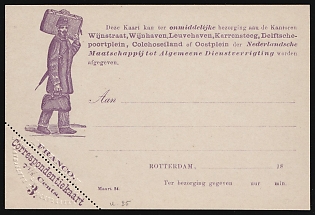 Deze Kaart kan ter onmiddelijke bezorging aan de Kantoren
Wijnstraat, Wijnhaven, Leuvehaven, Karrensteeg, Delftsche-
poortplein, Coolsingel of Oostplein der Nederlandsche
Maatschappij tot Algemeene Dienstverrigting worden
afgegeven.
Aan
FRANCO.
Correspondentiekaart
7½ Cents.
ROTTERDAM, 18
Ter bezorging gegeven uur min.
Maart 84.